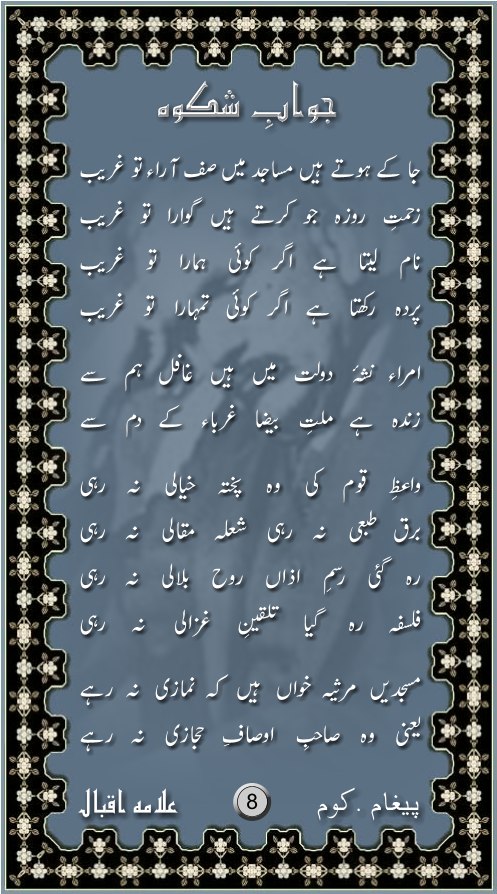 جوابِ شکوہ
جا کے ہوتے ہیں مساجد میں صف آراء تو غریب
زحمتِ روزہ جو کرتے ہیں گوارا تو غریب
نام لیتا ہے اگر کوئی ہمارا تو غریب
پردہ رکھتا ہے اگر کوئی تمہارا تو غریب
امراء نشۂ دولت میں ہیں غافل ہم سے
زندہ ہے ملتِ بیضا غرباء کے دم سے
واعظِ قوم کی وہ پختہ خیالی نہ رہی
برق طبعی نہ رہی شعلہ مقالی نہ رہی
رہ گئی رسمِ اذاں روحِ بلالی نہ رہی
فلسفہ رہ گیا تلقینِ غزالی نہ رہی
مسجدیں مرثیہ خواں ہیں کہ نمازی نہ رہے
یعنی وہ صاحبِ اوصافِ حجازی نہ رہے
پیغام .کوم 8 علامہ اقبال